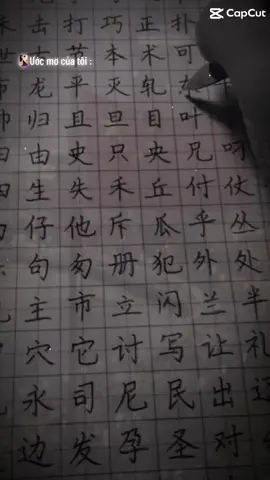 CapCut
末击打巧正扑
世古节本术可
布龙平灭轧东
帅归且旦目叶
田由史只央兄呀
生失禾丘付仗
仔他斥瓜乎丛
句匆册犯外处
主市立闪兰半
穴它讨写让礼
永司尼民出辽
边发孕圣对
Ước mơ của tôi :